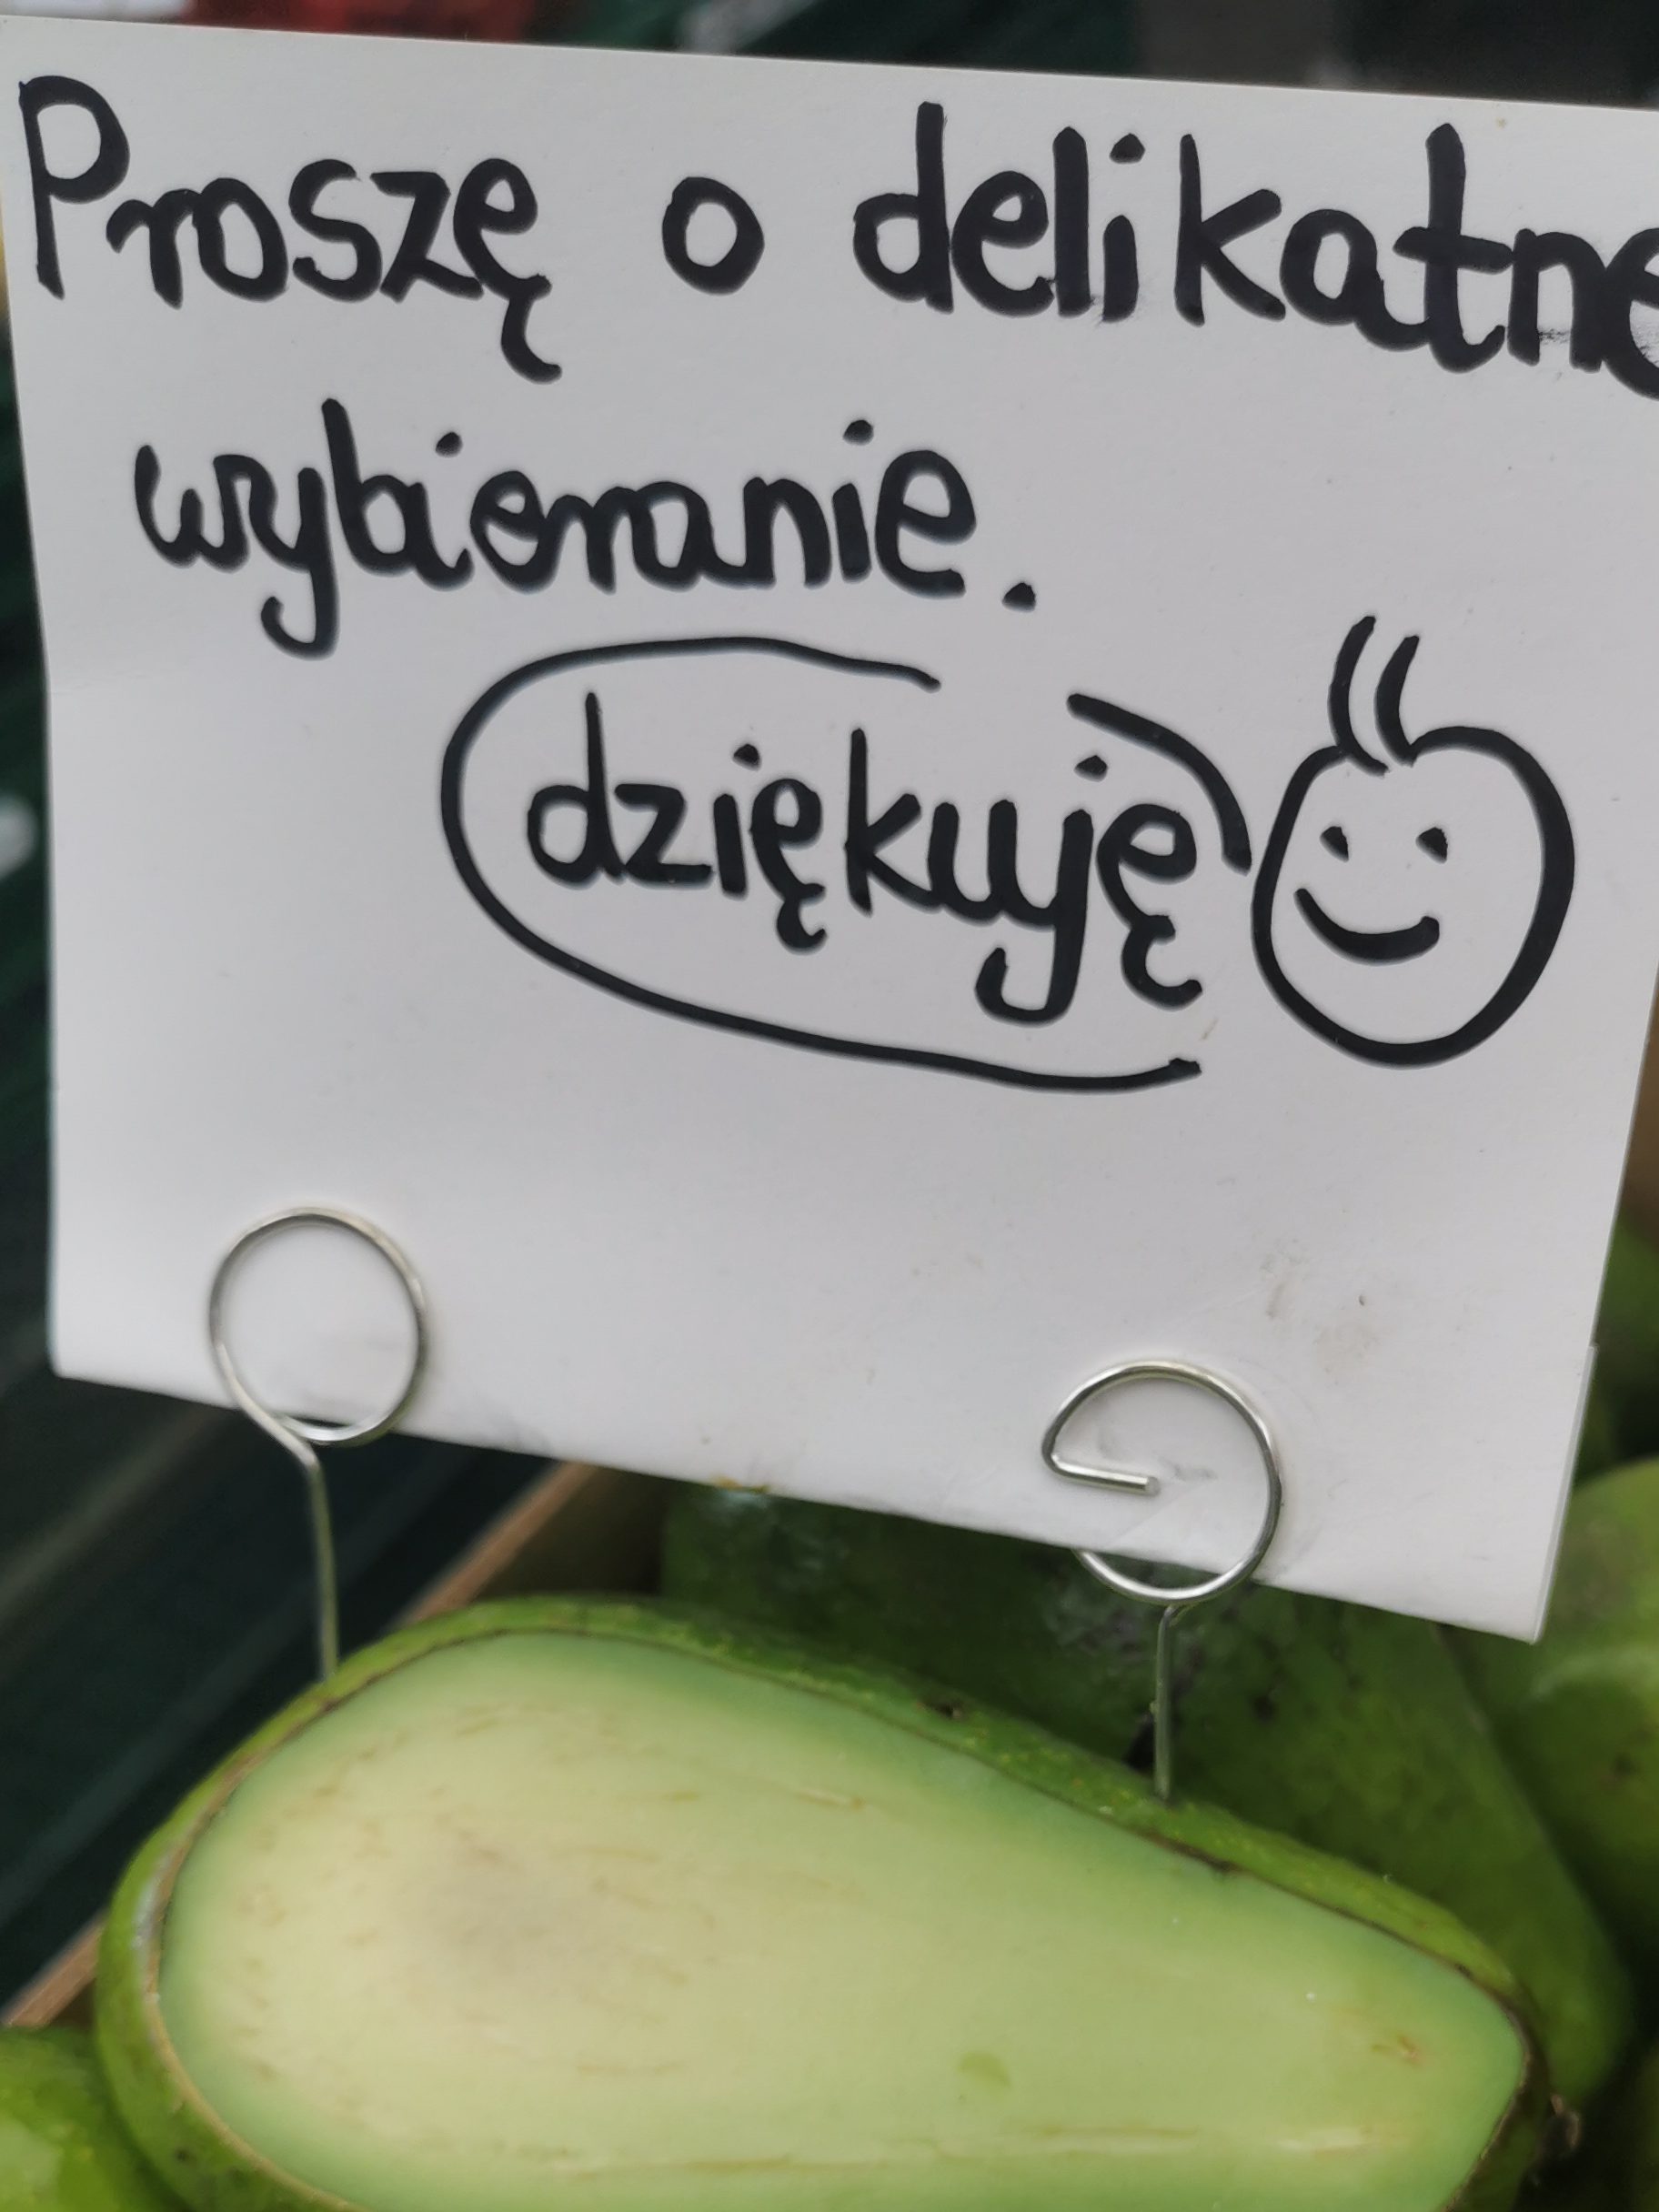 Proszę o delikatne
wybieranie.
dziękuję